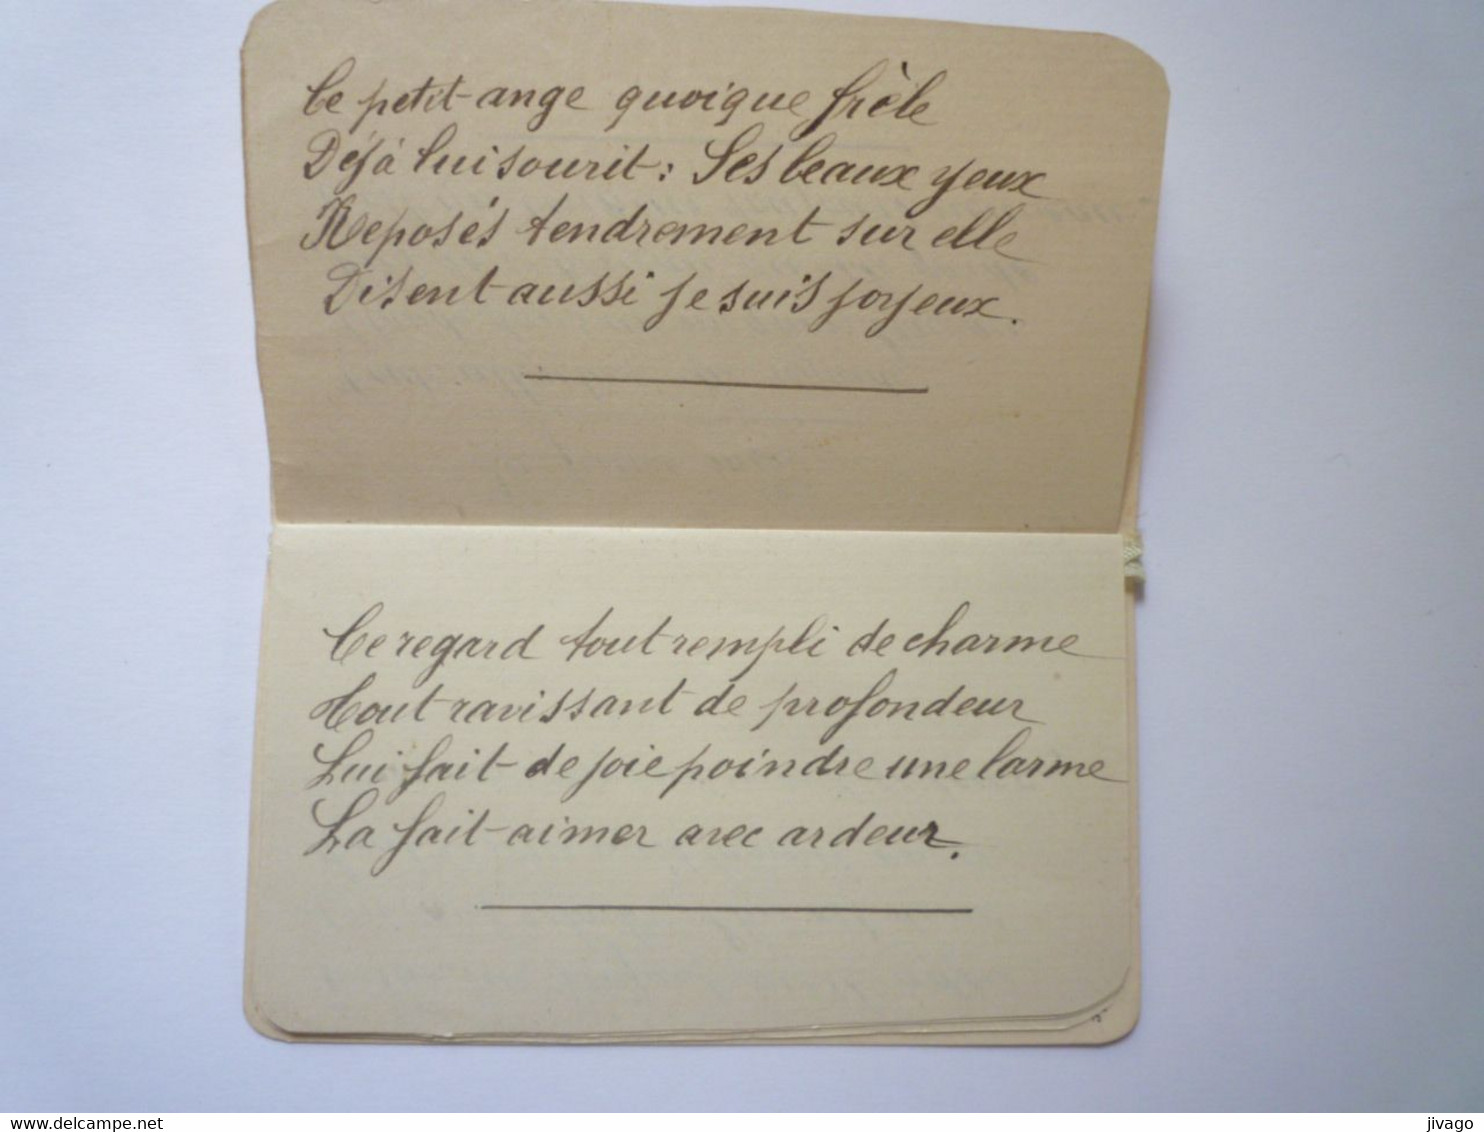 Ce petit ange quoique frèle
Déjà lui sourit : Ses beaux yeux
Reposés tendrement sur elle
Disent aussi je suis joyeux.
Ce regard tout rempli de charme
Tout ravissant de profondeur
Lui fait de joie poindre une larme
La fait aimer avec ardeur.
www.delcampe.net
jivago